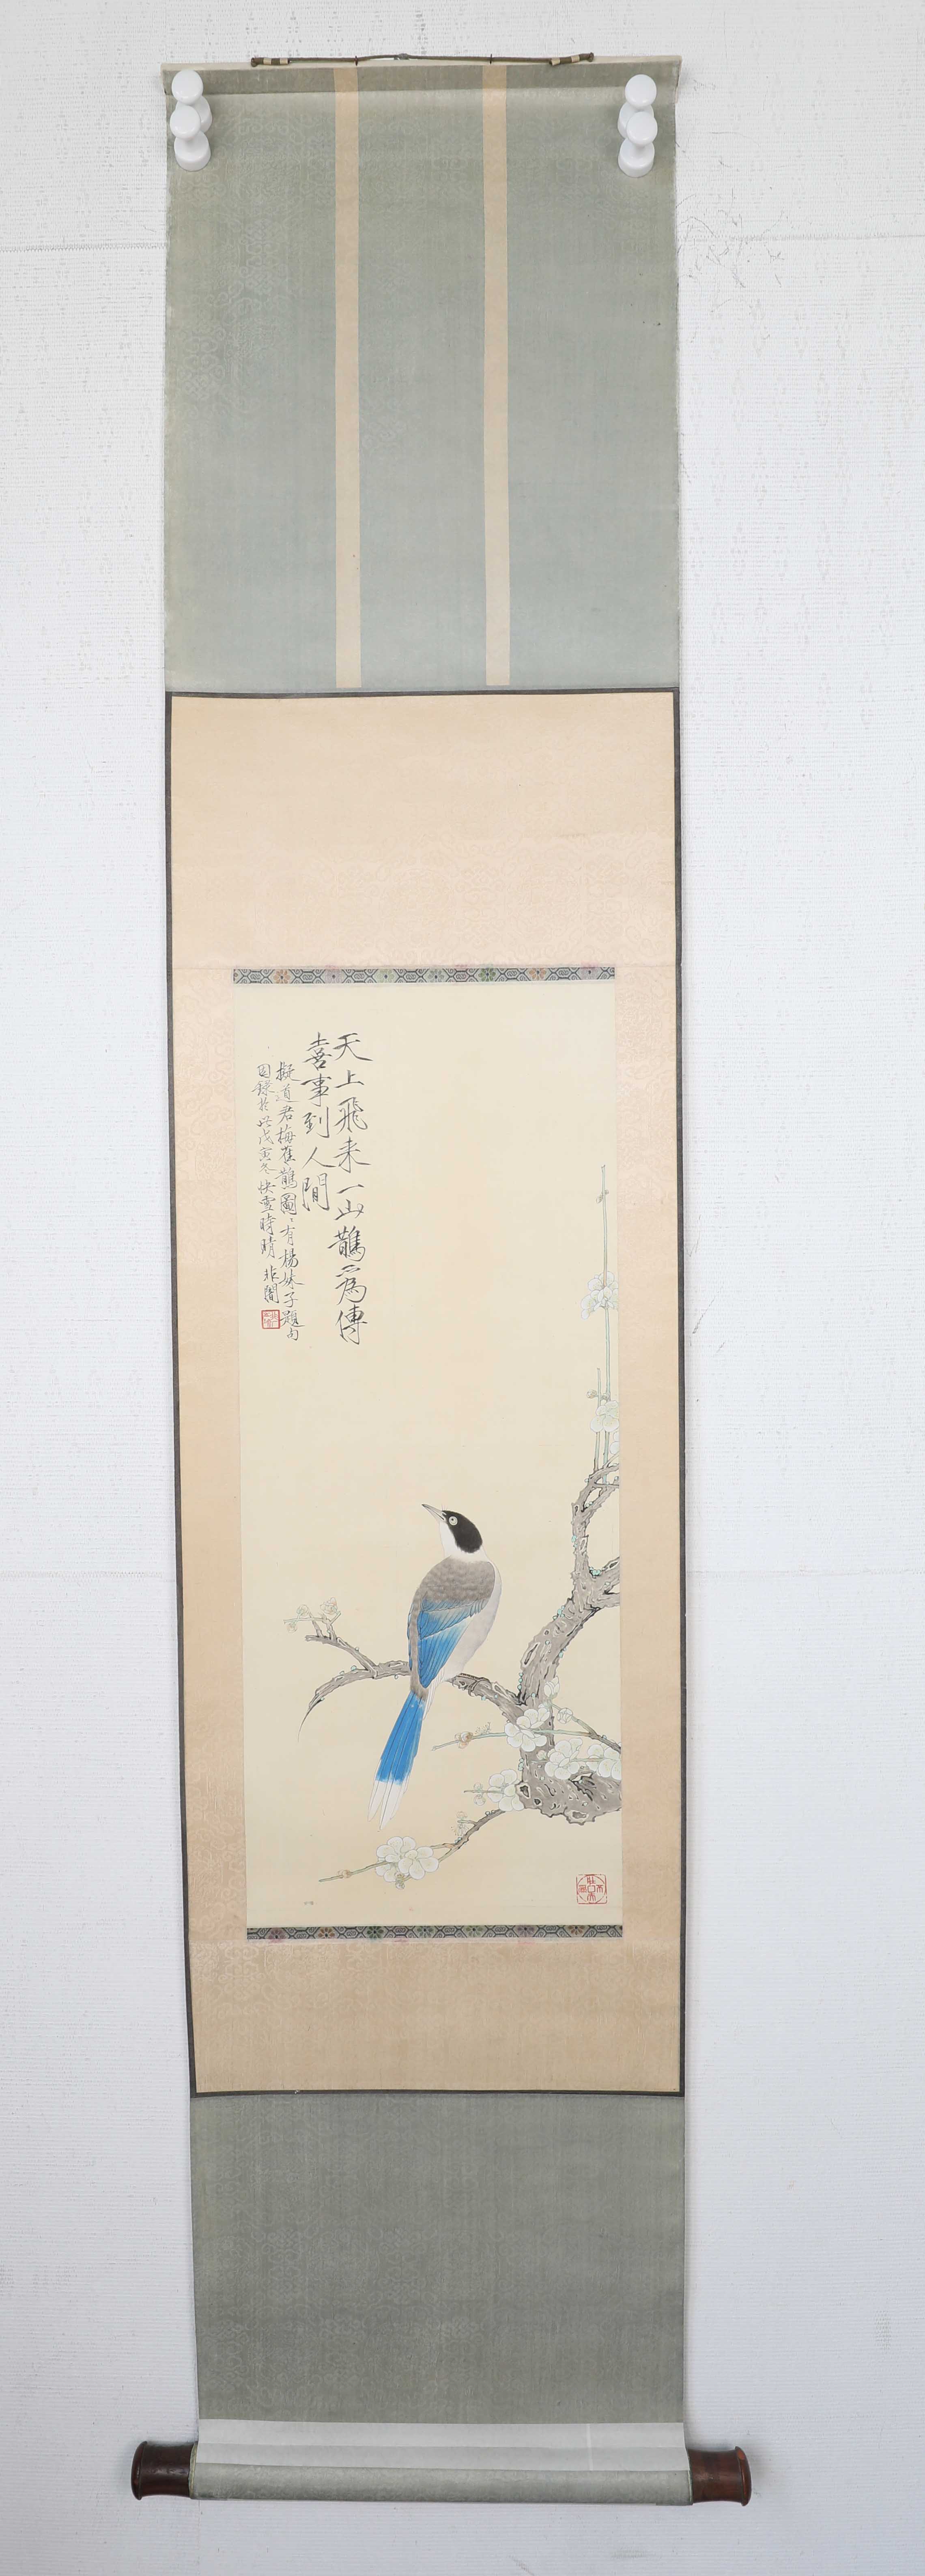 天上飛来一山鵲為傳
喜事到人間
擬道君梅雀鵲圖〻有楊妹子題句
因錄於此戊寅冬快雪時晴非闇